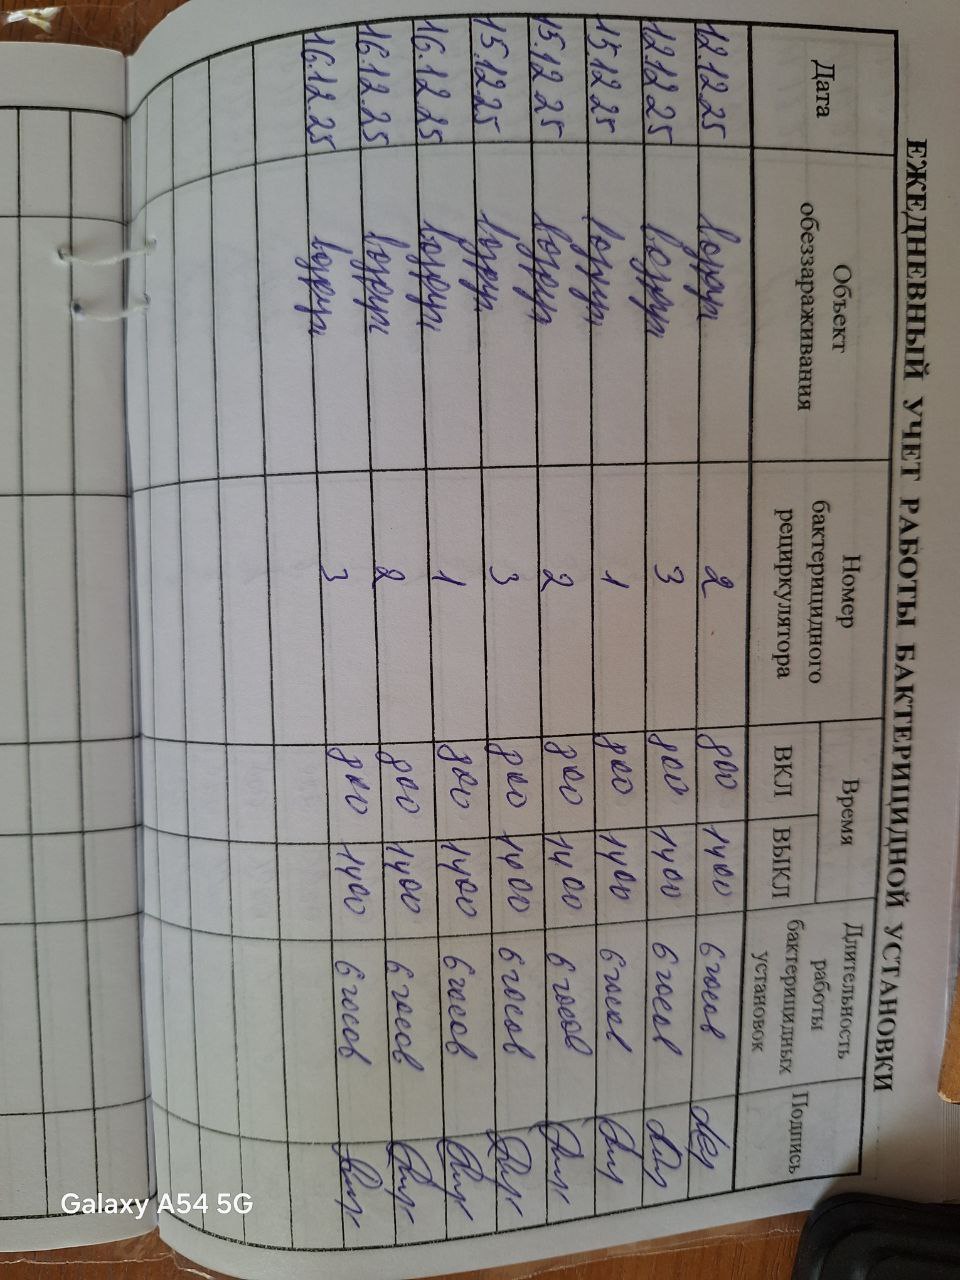 ЕЖЕДНЕВНЫЙ УЧЕТ РАБОТЫ БАКТЕРИЦИДНОЙ УСТАНОВКИ
Дата
Объект обеззараживания
Номер бактерицидного рециркулятора
Время
ВКЛ
ВЫКЛ
Длительность работы бактерицидных установок
Подпись
12.12.25 воздух 2 800 1400 6 часов
12.12.25 воздух 3 800 1400 6 часов
15.12.25 воздух 1 800 1400 6 часов
15.12.25 воздух 2 800 1400 6 часов
15.12.25 воздух 3 800 1400 6 часов
16.12.25 воздух 1 800 1400 6 часов
16.12.25 воздух 2 800 1400 6 часов
16.12.25 воздух 3 800 1400 6 часов
Galaxy A54 5G